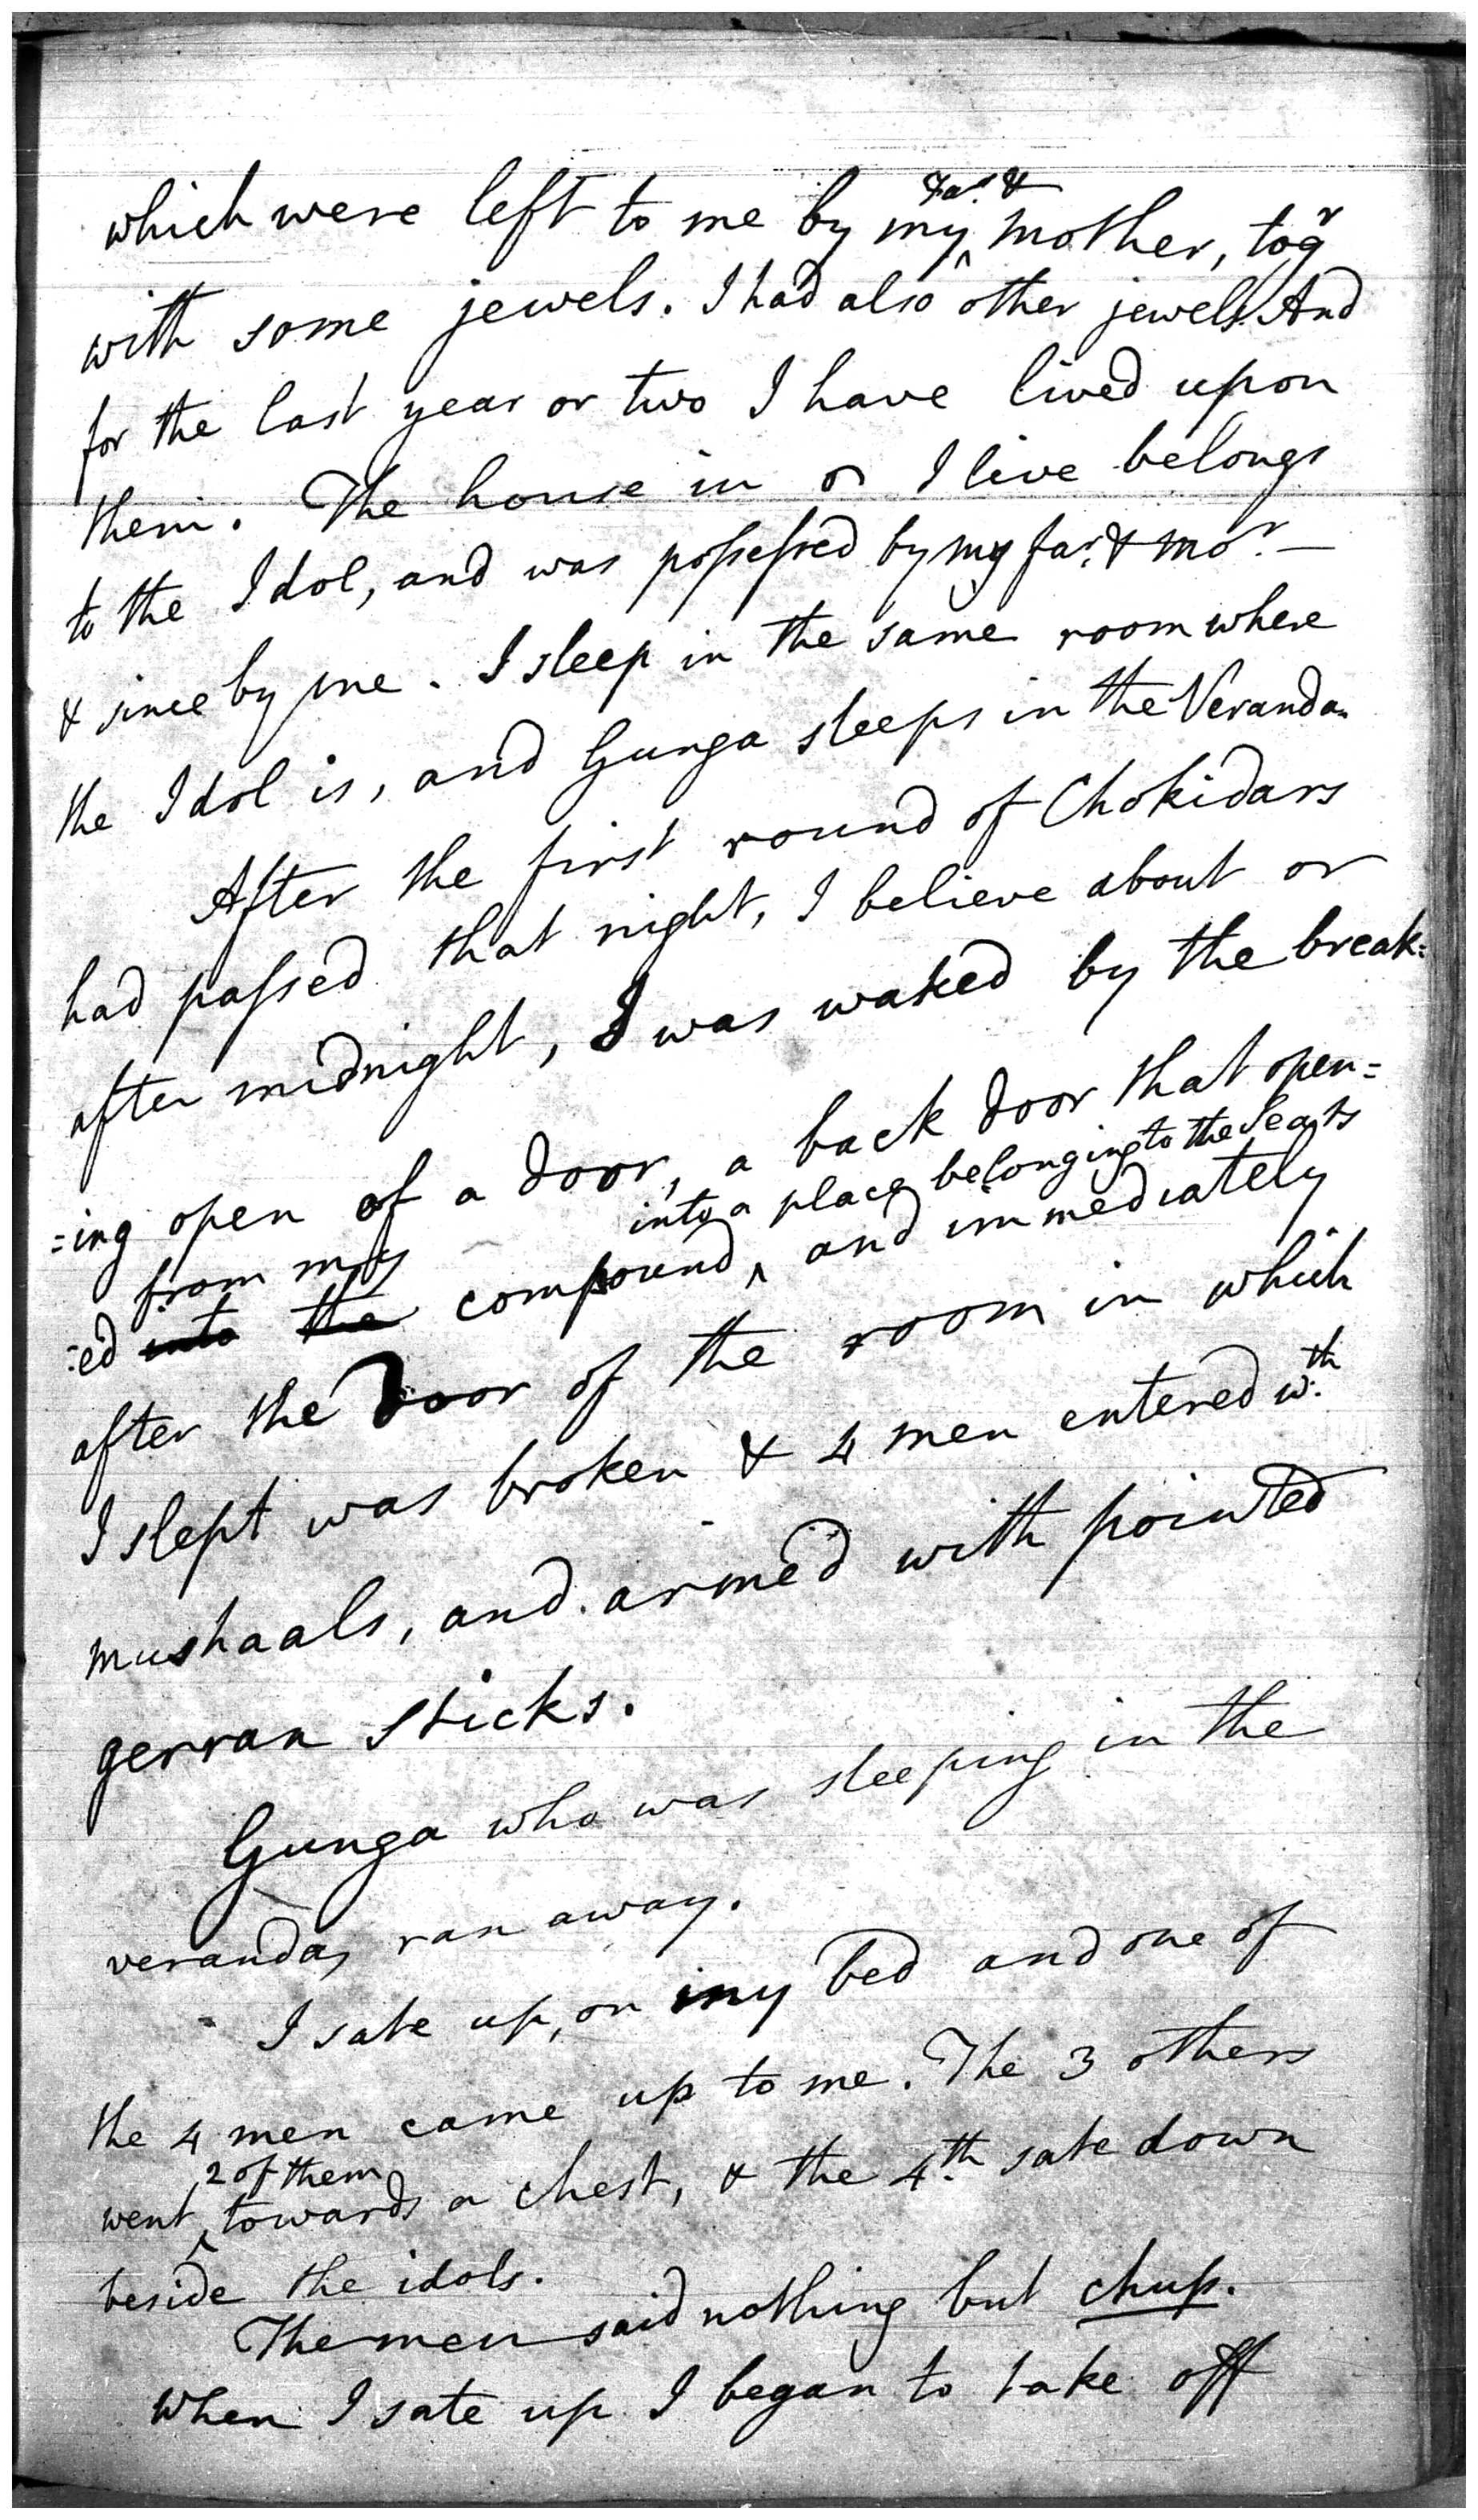 which were left to me by my ^Far. &^ mother, togr
with some jewels. I had also other jewels. And
for the last year or two I have lived upon
them. The house in I live belongs
to the Idol, and was possessed by my far. & mor. —
& since by me. I sleep in the same room where
the Idol is, and Gunga sleeps in the Veranda.
After the first round of Chokidars
had passed that night, I believe about or
after midnight, I was waked by the break=
=ing open of a door, a back door that open=
into a place belonging to the Seats
from my
=ed into the compound, and immediately
after the Door of the room in which
I slept was broken & 4 men entered w.th
mushaals, and armed with pointed
gerran sticks.
Gunga who was sleeping in the
veranda, ran away.
I sate up, on my bed and one of
the 4 men came up to me. The 3 others
2 of them
went towards a chest, & the 4.th sate down
beside the idols.
The men said nothing but chup.
When I sate up I began to take off